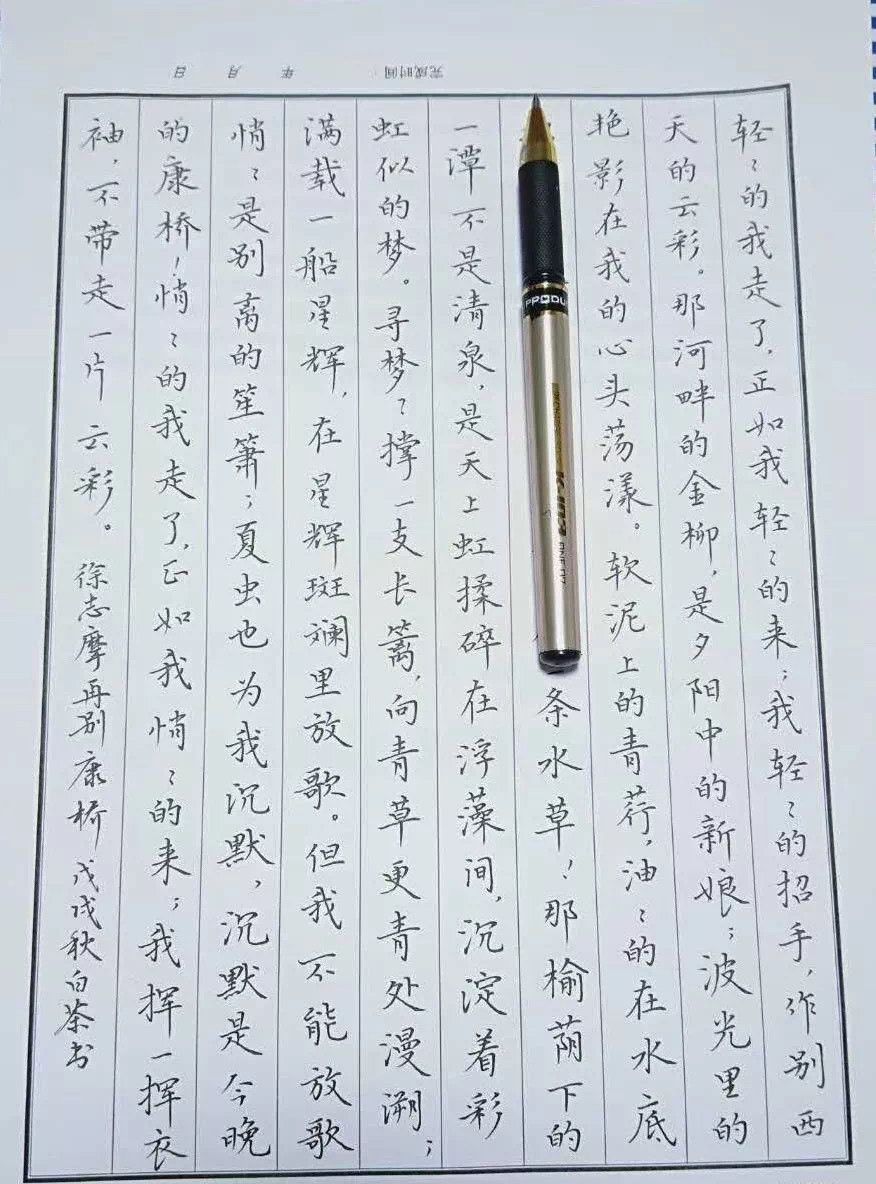 完成时间: 年 月 日
轻〻的我走了,正如我轻〻的来;我轻〻的招手,作别西
天的云彩。那河畔的金柳,是夕阳中的新娘;波光里的
艳影在我的心头荡漾。软泥上的青荇,油〻的在水底
条水草!那榆荫下的
一潭不是清泉,是天上虹揉碎在浮藻间,沉淀着彩
虹似的梦。寻梦?撑一支长篙,向青草更青处漫溯;
满载一船星辉,在星辉斑斓里放歌。但我不能放歌
悄〻是别离的笙箫;夏虫也为我沉默,沉默是今晚
的康桥!悄〻的我走了,正如我悄〻的来;我挥一挥衣
袖,不带走一片云彩。徐志摩再别康桥 戊戌秋白茶书